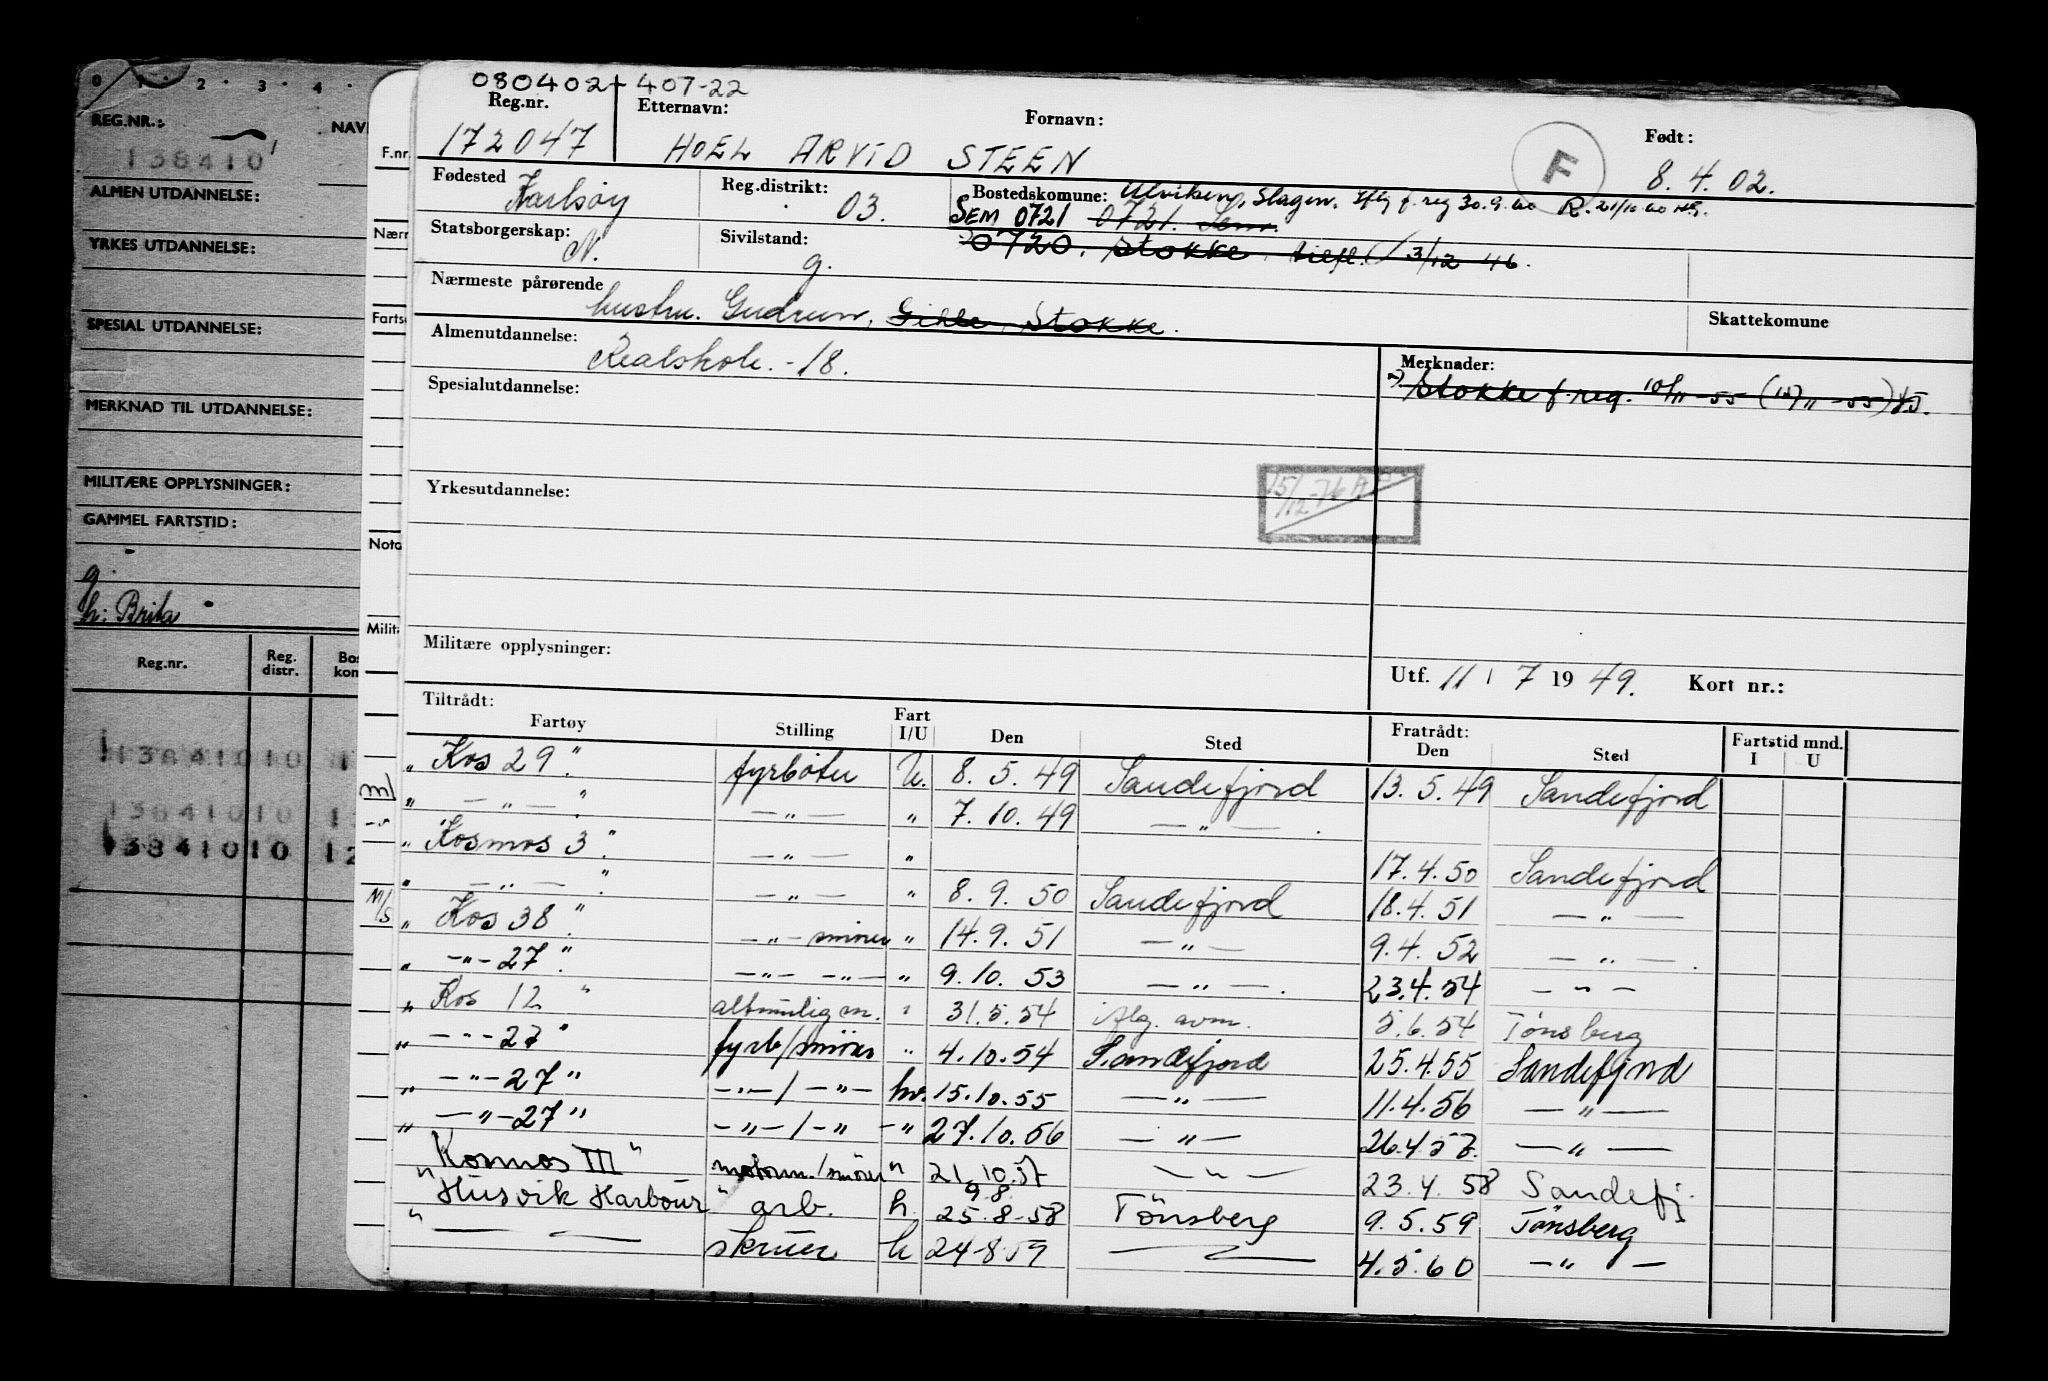 0 1 2 3 4
REG.NR.: NAV
138410
ALMEN UTDANNELSE:
YRKES UTDANNELSE:
SPESIAL UTDANNELSE:
MERKNAD TIL UTDANNELSE:
MILITÆRE OPPLYSNINGER:
GAMMEL FARTSTID:
g.
h: Brita
Reg.nr. Reg. distr. Bos kom
13841010 1
13841010 1
13841010 12
F.nr
Nærr
Farts
Nota
Milit
m/
M/s
080402 - 407-22
Reg.nr. Etternavn: Fornavn: Født:
172047 HOEL ARVID STEEN F 8.4.02.
Fødested Karlsøy Reg.distrikt: 03. Bostedskommune: Ulviken, Slagen. iflg f.reg 30.9.60 R. 21/10 60
SEM 0721 0721. Sem
Statsborgerskap: N. Sivilstand: g. 0720. Stokke, tilfl. 3/12 46.
Nærmeste pårørende hustru. Gudrun, Gille, Stokke. Skattekomune
Almenutdannelse: Realskole. -18. Merknader:
Stokke f.reg. 10/11-55 (12/11-55)
Spesialutdannelse:
Yrkesutdannelse: 15/12-76
Militære opplysninger: Utf. 11 / 7 1949. Kort nr.:
Tiltrådt: Fratrådt: Fartstid mnd.
Fartøy Stilling Fart I/U Den Sted Den Sted I U
„ Kos 29 " fyrbøter U. 8. 5. 49 Sandefjord 13. 5. 49 Sandefjord
„ — „ — " — „ — " 7. 10. 49 — „ — .
„ Kosmos 3 " — „ — " 17. 4. 50 Sandefjord
„ — „ — " — „ — " 8. 9. 50 Sandefjord 18. 4. 51 — „ —
„ Kos 38 " — „ — smører " 14. 9. 51 — „ — 9. 4. 52 — „ — .
„ — „ — 27 " — „ — — „ — " 9. 10. 53 — „ — . 23. 4. 54 — „ —
„ Kos 12 " altmulig m. " 31. 5. 54 Alg. avm. 5. 6. 54 Tønsberg
„ — „ — 27 " fyrb/smører " 4. 10. 54 Sandefjord 25. 4. 55 Sandefjord
„ — „ — 27 " — „ — / — „ — hv. 15. 10. 55 — „ — 11. 4. 56 — „ —
„ — „ — 27 " — „ — / — „ — " 27. 10. 56 — „ — 26. 4. 57. — „ —
" Kosmos III " motorm./smører " 21. 10. 57 — „ — 23. 4. 58 Sandefj.
9.8
" Husvik Harbour " arb. h. 25. 8 - 58 Tönsberg 9. 5. 59 Tönsberg
" — — skruer h 24-8-59 — — 4. 5. 60 — „ —